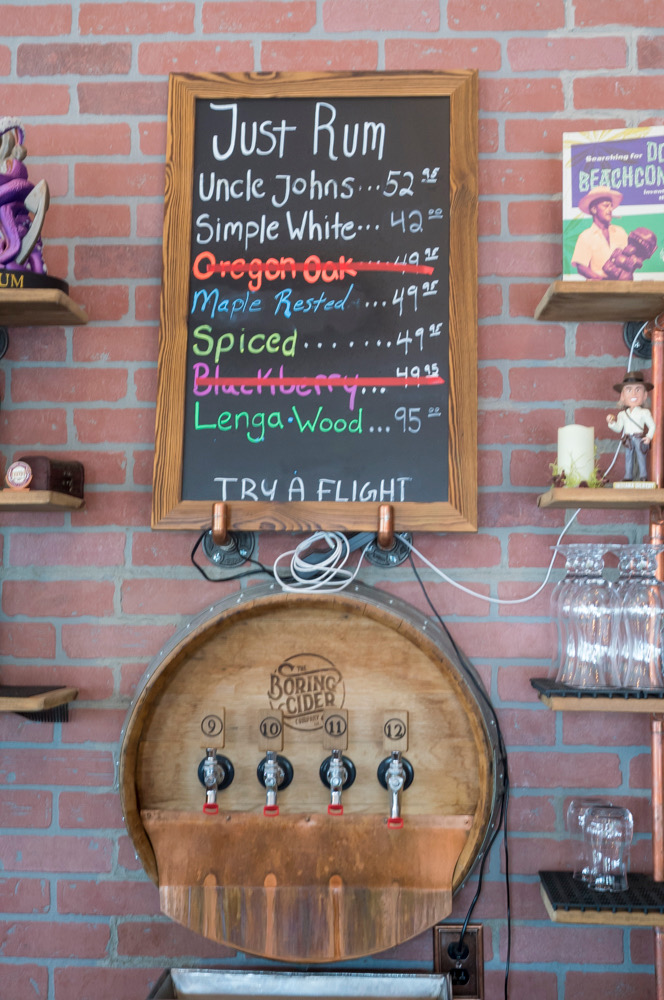 Just Rum
Uncle Johns...52.95
Simple White...42.00
Oregon Oak...49.95
Maple Rested...49.95
Spiced.......49.95
Blackberry...49.95
Lenga·Wood...95.00
TRY A FLIGHT
UM
Searching for DO
BEACHCOM
THE
BORING
CIDER
COMPANY
9
10
11
12